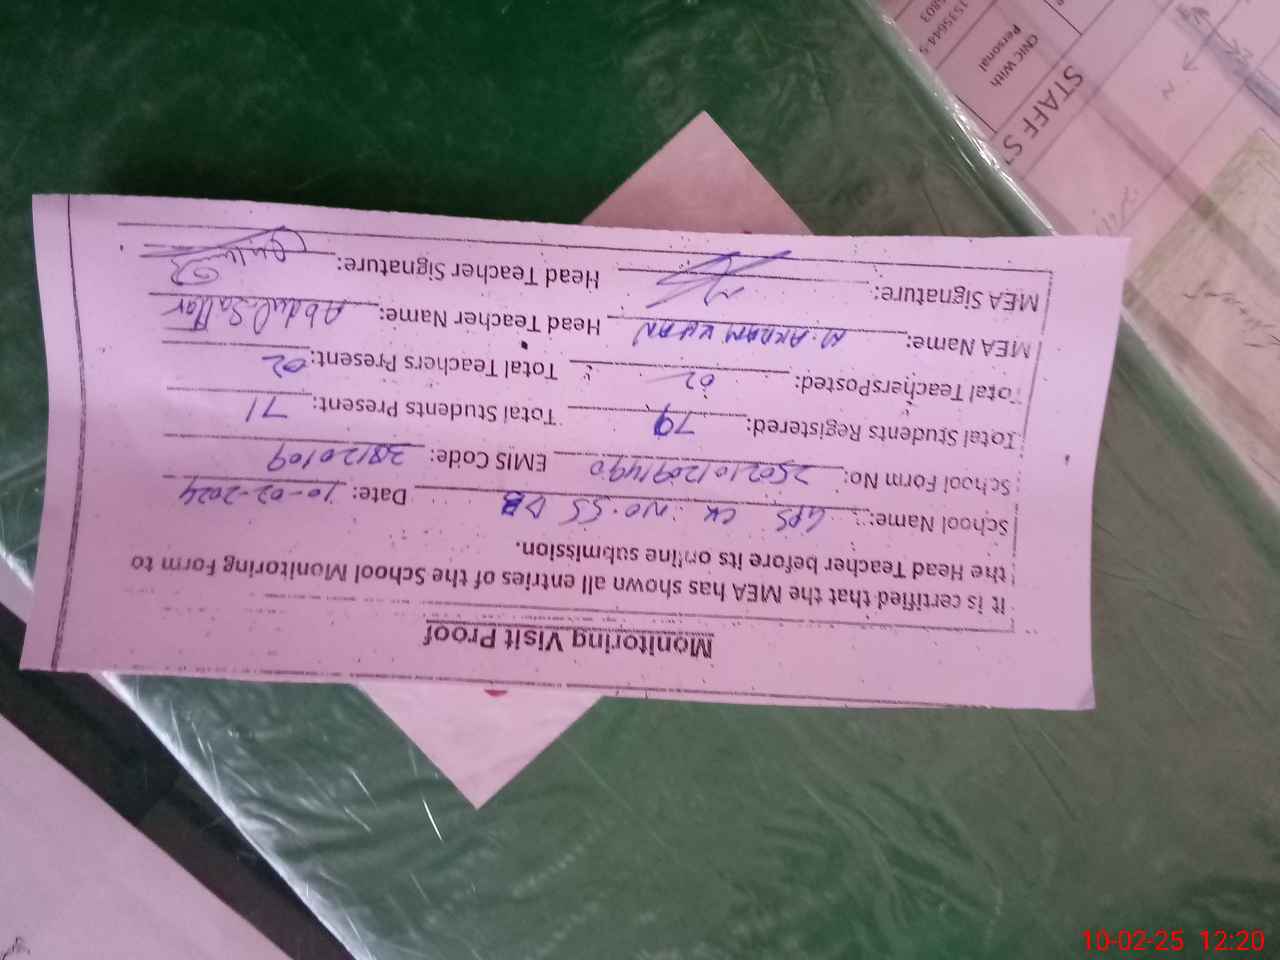 Monitoring Visit Proof
It is certified that the MEA has shown all entries of the School Monitoring Form to
the Head Teacher before its online submission.
School Name: GPS CK NO. 55 DB Date: 10-02-2024
School Form No: 25021012091490 EMIS Code: 38120109
Total Students Registered: 79 Total Students Present: 71
Total TeachersPosted: 02 Total Teachers Present: 02
MEA Name: M. AKRAM KHAN Head Teacher Name: Abdul Sattar
MEA Signature: Head Teacher Signature:
STAFF
CNIC With
Personal
10-02-25 12:20